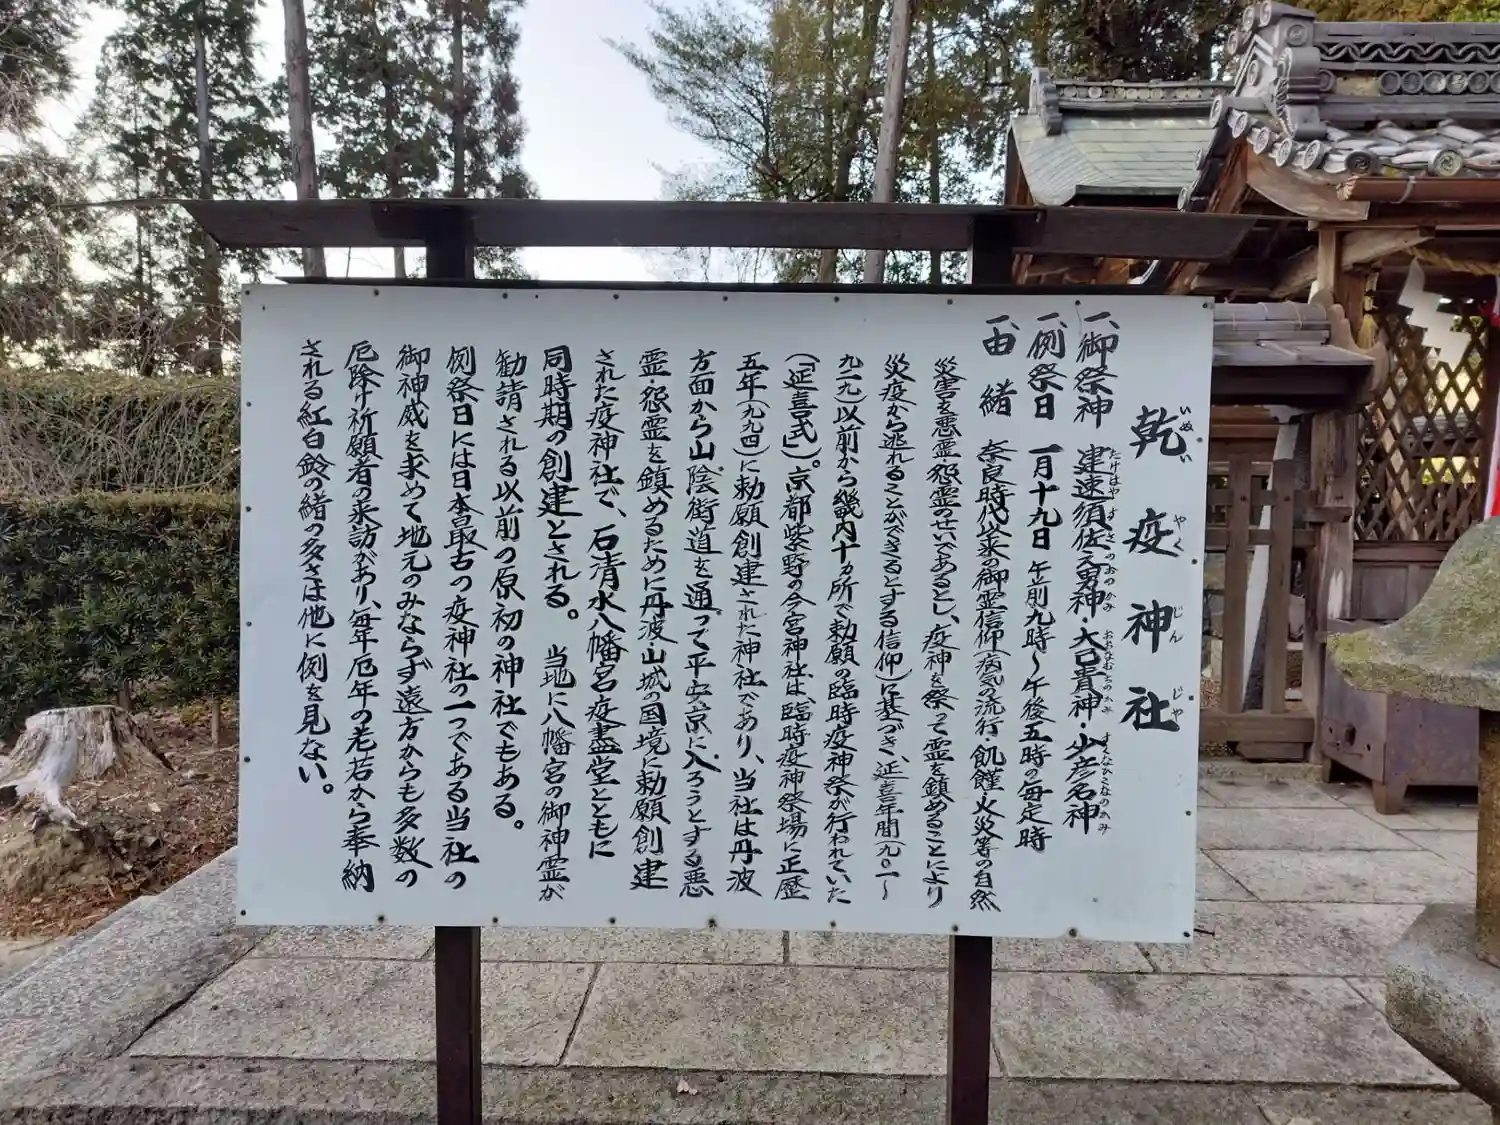 乾疫神社
いぬいやくじんじゃ
一、御祭神 建速須佐之男神・大己貴神・少彦名神
たけはやすさのおのかみ おおなむちのかみ すくなひこなのかみ
一、例祭日 一月十九日 午前九時～午後五時の毎定時
一、由緒 奈良時代以来の御霊信仰(病気の流行・飢饉・火災等の自然
災害を悪霊・怨霊のせいであるとし、疫神を祭って霊を鎮めることにより
災疫から逃れることができるとする信仰)に基づき、延喜年間(九〇一～
九一九)以前から畿内十ヵ所で勅願の臨時疫神祭が行われていた
(「延喜式」)。京都紫野の今宮神社は、臨時疫神祭場に正歴
五年(九九四)に勅願創建された神社であり、当社は丹波
方面から山陰街道を通って平安京に入ろうとする悪
霊・怨霊を鎮めるために丹波・山城の国境に勅願創建
された疫神社で、石清水八幡宮疫盡堂とともに
同時期の創建とされる。 当地に八幡宮の御神霊が
勧請される以前の原初の神社でもある。
例祭日には日本最古の疫神社の一つである当社の
御神威を求めて地元のみならず遠方からも多数の
厄除け祈願者の来訪があり、毎年厄年の老若から奉納
される紅白鈴の緒の多さは他に例を見ない。